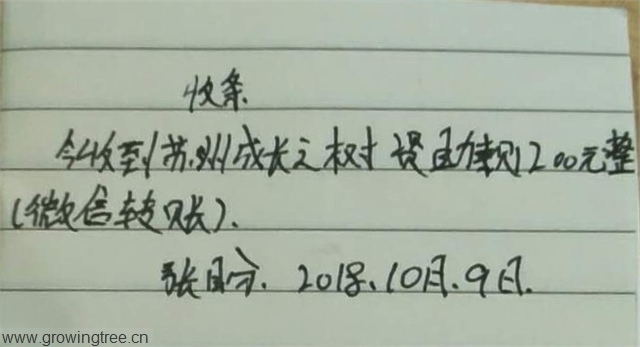 收条
今收到苏州成长之树资助款1200元整
(微信转账).
张月芬. 2018、10月、9日.
www.growingtree.cn